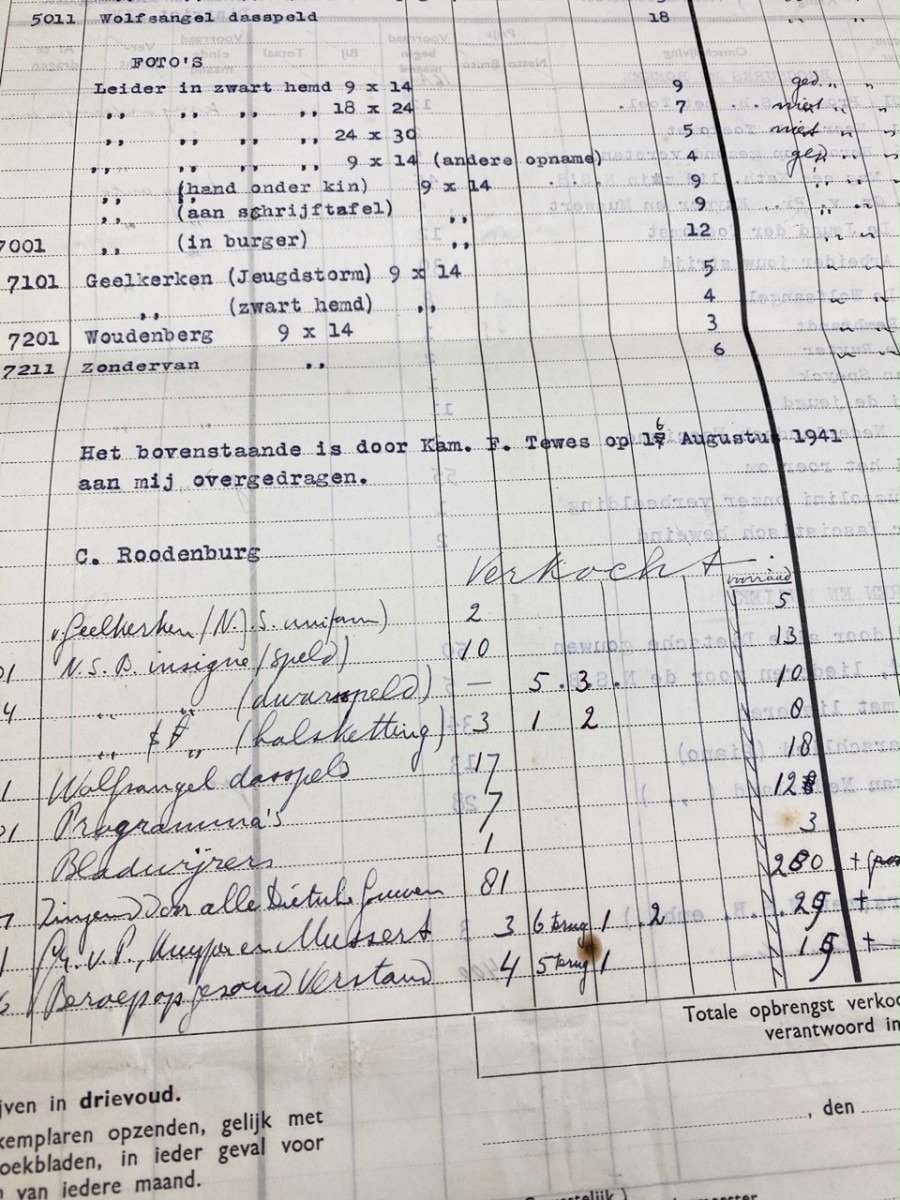 5011 Wolfsangel dasspeld 18
FOTO'S
Leider in zwart hemd 9 x 14 9 ged. „ „
„ „ „ „ 18 x 24 7 niet „ „
„ „ „ „ 24 x 30 5 niet „ „
„ „ „ „ 9 x 14 (andere opname) 4 ged. „ „
„ (hand onder kin) 9 x 14 9 „ „ „
„ (aan schrijftafel) „ 9 „ „ „
7001 „ (in burger) „ 12 „ „ „
7101 Geelkerken (Jeugdstorm) 9 x 14 5 „ „ „
„ (zwart hemd) „ 4 „ „ „
7201 Woudenberg 9 x 14 3 „ „
7211 Zondervan „ 6 „ „
Het bovenstaande is door Kam. F. Tewes op 16 Augustus 1941
aan mij overgedragen.
C. Roodenburg
Verkocht voorraad
v. Geelkerken (N.J.S. uniform) 2 5
01 N.S.B. insigne (speld) 10 13
4 „ „ (dwarsspeld) — 5 . 3 . 10
„ „ (halsketting) 3 1 2 8
1 Wolfsangel dasspeld 17 18
01 Programma's 7 128
Bladwijzers 1 3
7 Zingend door alle Dietsche Gouwen 81 280 +
1 Gr. v. P., Kuyper en Mussert 3 6 terug 1 2 25 +
6 Beroep op gezond Verstand 4 5 terug 1 15 +
Totale opbrengst verko
verantwoord in
jven in drievoud.
xemplaren opzenden, gelijk met
oekbladen, in ieder geval voor
n van iedere maand.
, den